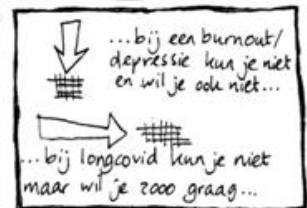 ...bij een burnout/
depressie kun je niet
en wil je ook niet...
...bij longcovid kun je niet
maar wil je zooo graag...